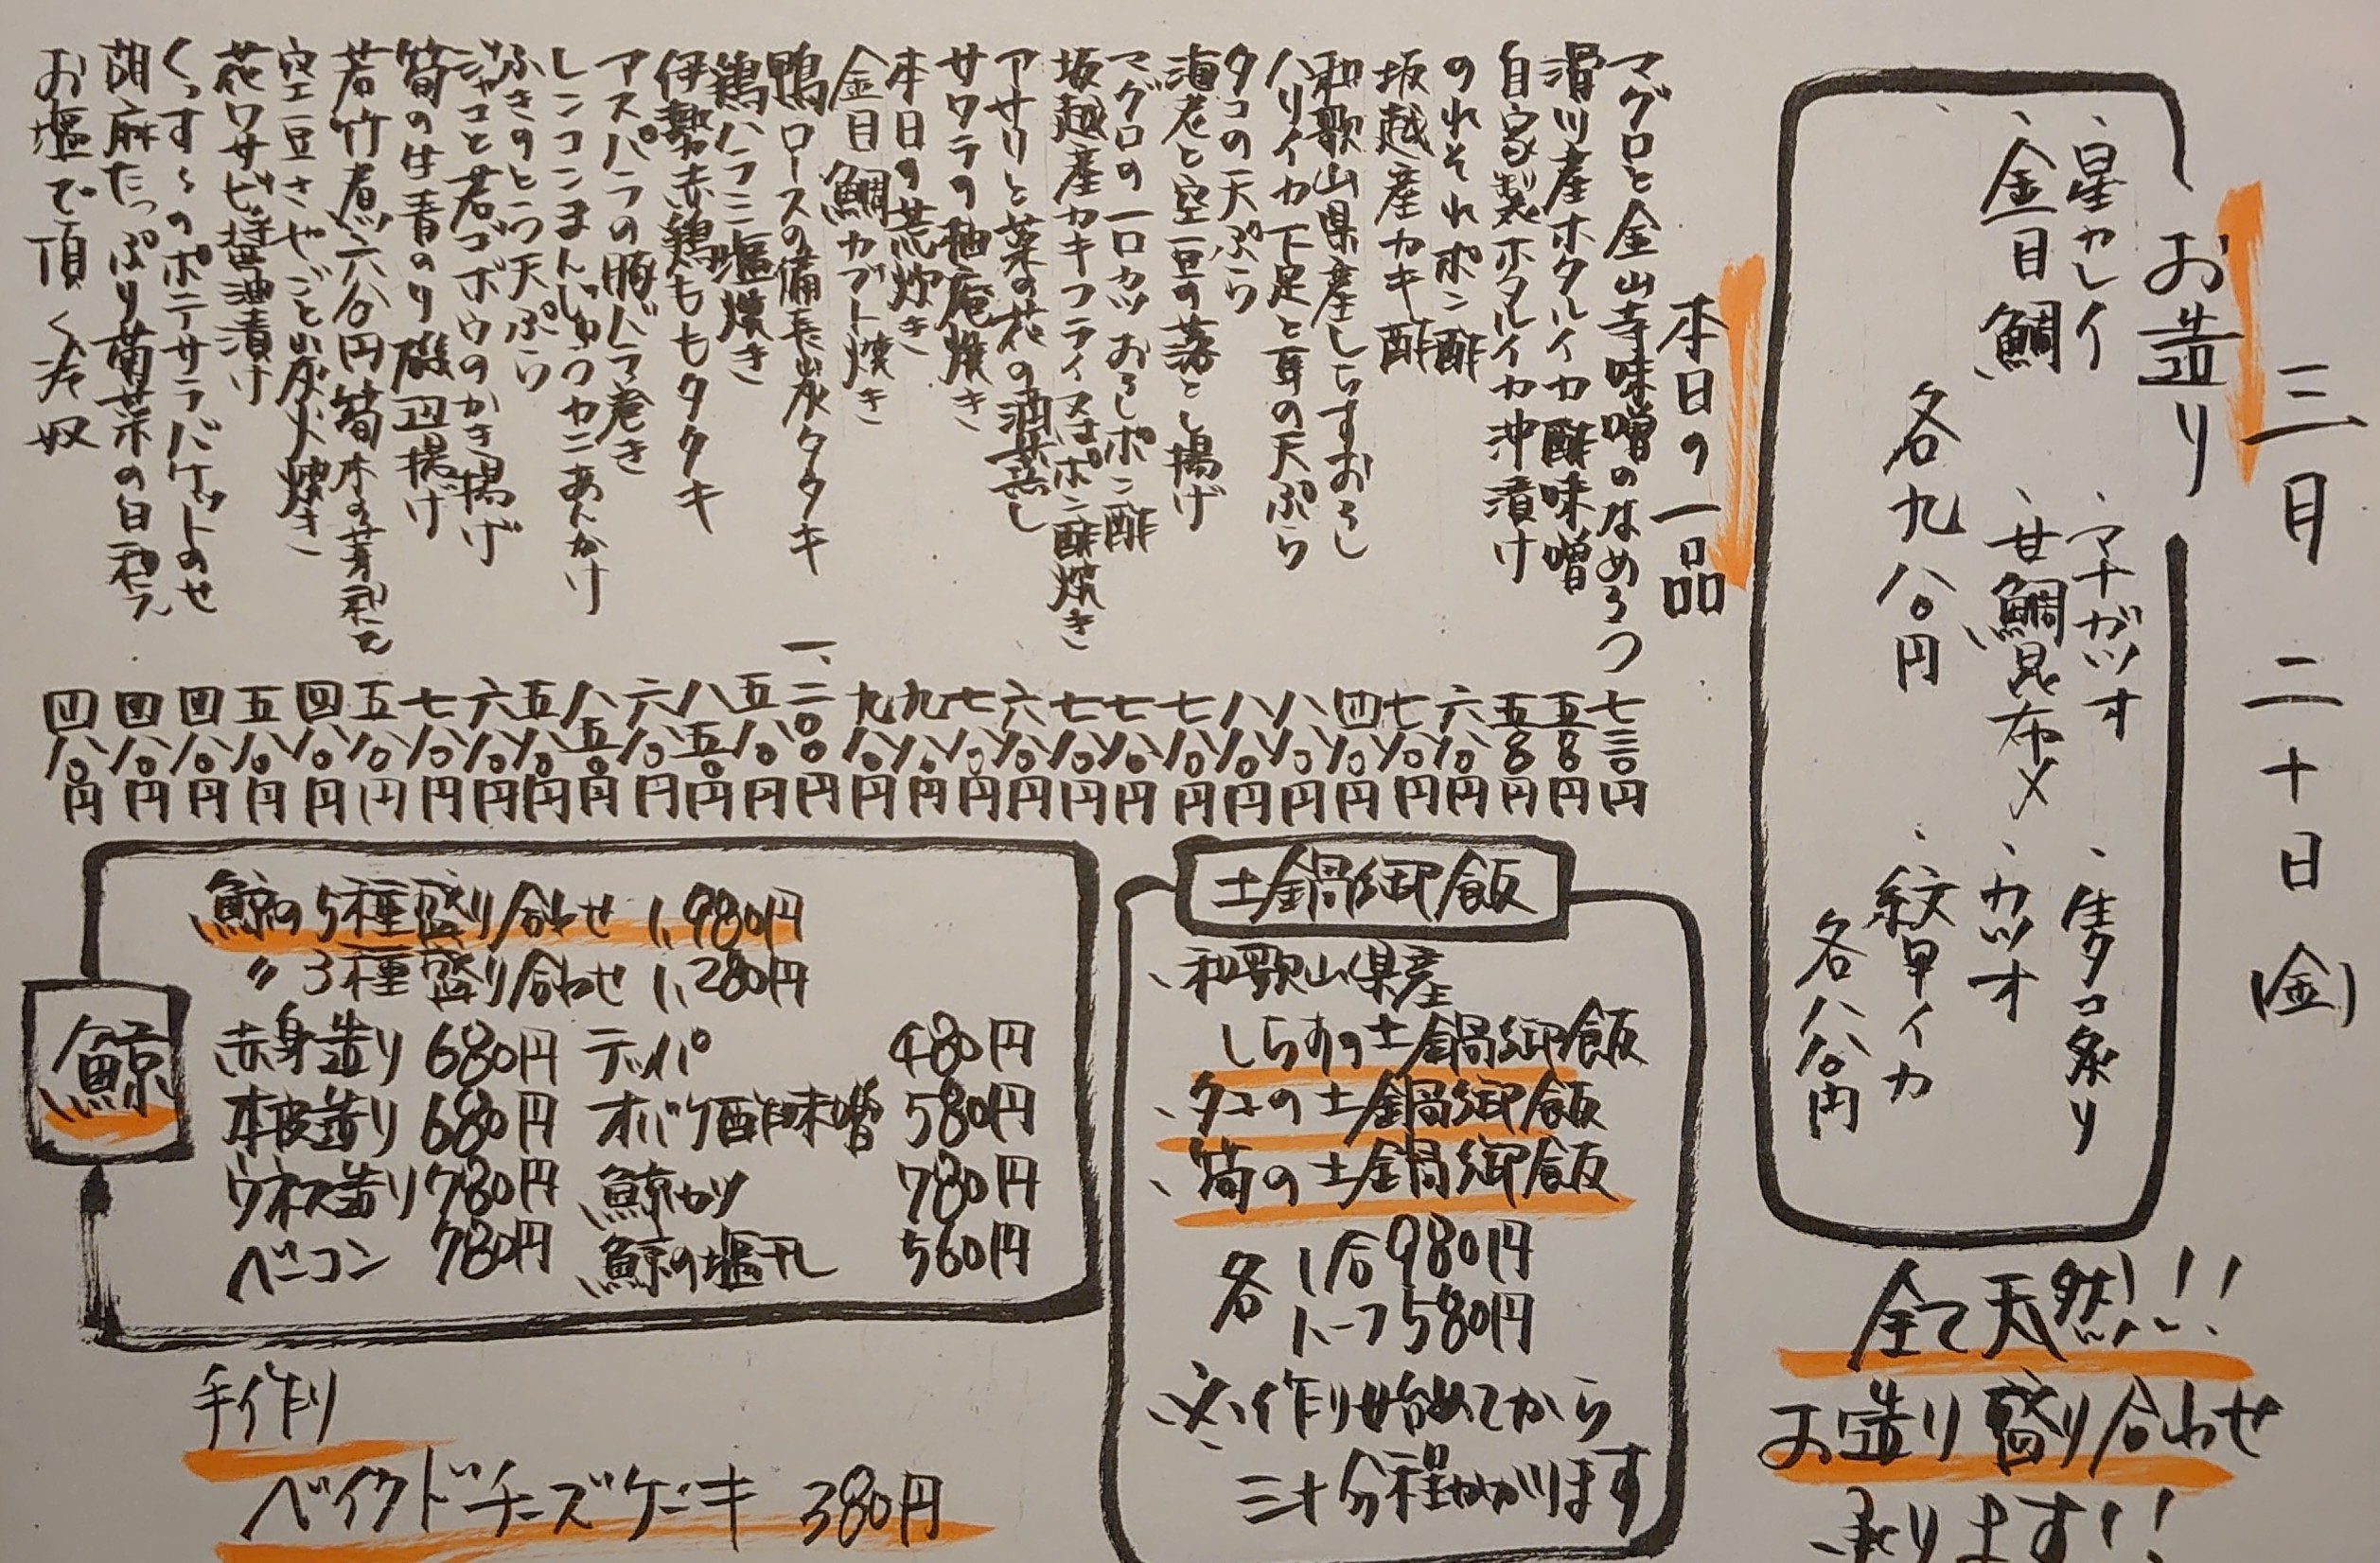 三月二十日(金)
お造り
、星カレイ 、マナガツオ 、生タコ炙り
、金目鯛 、甘鯛昆布〆 、カツオ
各九八〇円 、紋甲イカ
各八八〇円
全て天然!!
お造り盛り合わせ
承ります!!
本日の一品
マグロと金山寺味噌のなめろう 七三〇円
滑川産ホタルイカ酢味噌 五八〇円
自家製ホタルイカ沖漬け 五八〇円
のれそれポン酢 六八〇円
坂越産カキ酢 七八〇円
和歌山県産しらすおろし 四八〇円
ハリイカ下足と耳の天ぷら 八八〇円
タコの天ぷら 八八〇円
海老と空豆の落とし揚げ 七八〇円
マグロの一口カツおろしポン酢 七八〇円
坂越産カキフライ又はポン酢焼き 七八〇円
アサリと菜の花の酒蒸し 六八〇円
サワラの柚庵焼き 七八〇円
本日の荒炊き 九八〇円
金目鯛カブト焼き 九八〇円
鴨ロースの備長炭タタキ 一、二〇〇円
鶏ハラミ塩焼き 五八〇円
伊勢赤鶏ももタタキ 八五〇円
アスパラの豚バラ巻き 六八〇円
レンコンまんじゅうカニあんかけ 八五〇円
ふきのとう天ぷら 五八〇円
ジャコと若ゴボウのかき揚げ 六八〇円
筍の生青のり磯辺揚げ 七八〇円
若竹煮六八〇円 筍木の芽和え 五八〇円
空豆さやごと炭火焼き 四八〇円
花ワサビ醤油漬け 五八〇円
くっすぅのポテサラバケットのせ 四八〇円
胡麻たっぷり菊菜の白和え 四八〇円
お塩で頂く冷奴 四八〇円
土鍋御飯
、和歌山県産
しらすの土鍋御飯
、タコの土鍋御飯
、筍の土鍋御飯
各 1合980円
ハーフ580円
※作り始めてから
三十分程かかります
鯨
鯨の5種盛り合わせ 1,980円
〃3種盛り合わせ 1,280円
赤身造り 680円 テッパ 480円
本皮造り 680円 オバケ酢味噌 580円
ウネス造り 780円 鯨カツ 780円
ベーコン 780円 鯨の塩干し 560円
手作り
ベイクドチーズケーキ 380円